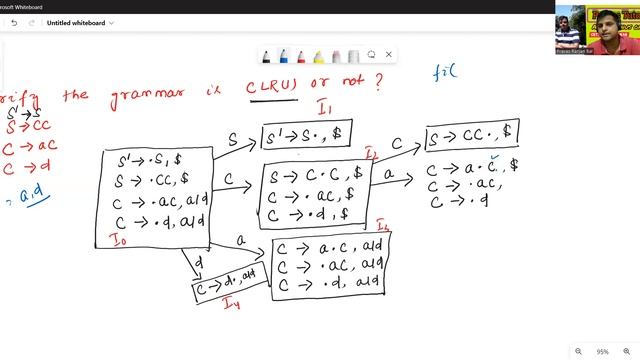 Microsoft Whiteboard
Untitled whiteboard
rify the grammar is CLR(1) or not?
fi(
S' → S
S → CC
C → aC
C → d
= a,d
S' → ·S, $
S → ·CC, $
C → ·aC, a/d
C → ·d, a/d
I0
S
I1
S' → S·, $
C
I2
S → C·C, $
C → ·aC, $
C → ·d, $
C
S → CC·, $
a
C → a·C, $
C → ·aC,
C → ·d
a
I3
C → a·C, a/d
C → ·aC, a/d
C → ·d, a/d
d
C → d·, a/d
I4
95%